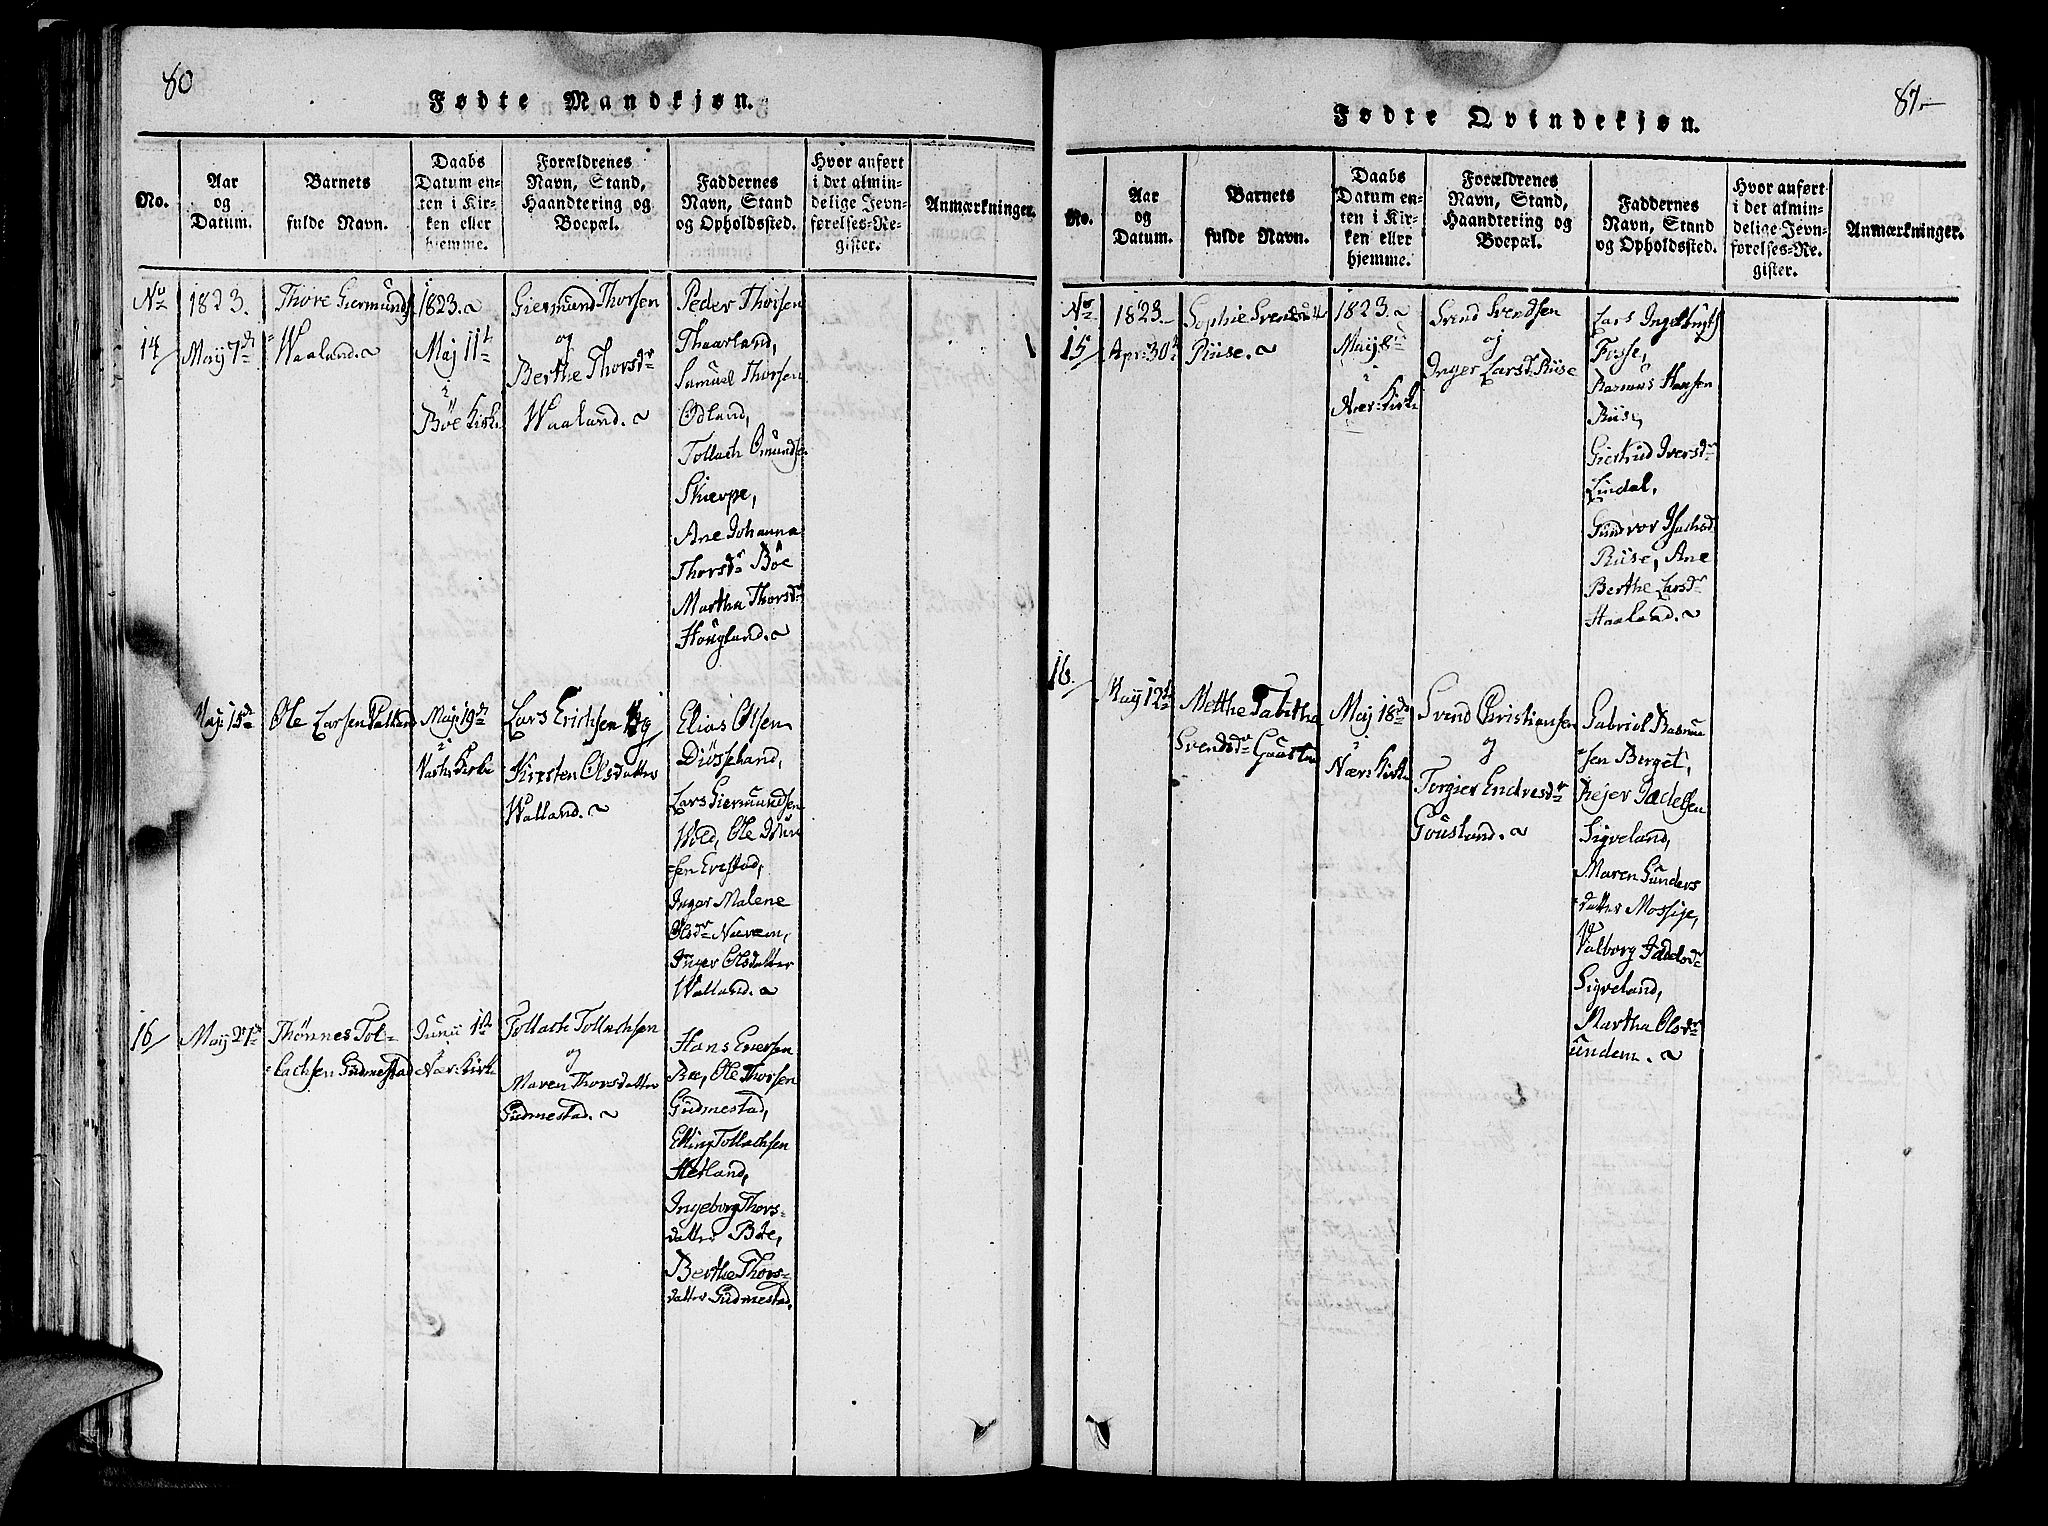 80
Fødte Mandkjøn.
No.
Aar
og
Datum.
Barnets
fulde Navn.
Daabs
Datum en-
ten i Kir-
ken eller
hjemme.
Forældrenes
Navn, Stand,
Haandtering og
Boepæl.
Faddernes
Navn, Stand
og Opholdssted.
Hvor anført
i det almin-
delige Jevn-
førelses-Re-
gister.
Anmærkninger.
No
14
1823.
May 7de
Thore Giermunds
Waaland.
1823.
Maj 11te
i
Böe Kirke
Giermund Thorsen
og
Berthe Thorsdr
Waaland.
Peder Thorsen
Thaarland,
Samuel Thorsen
Ødland,
Tollach Omundse
Skierpe,
Ane Johanna
Thorsdr Böe
Martha Thorsdr
Hougland.
Maji 15de
Ole Larsen
Maji 19de
i
Kirke
Lars Erichsen og
Kirsten Olsdatter
Walland.
Elias Olsen
Diösseland,
Lars Giermundsen
Wold, Ole
sen Evestad,
Inger Malene
Olsdr Nærem,
Inger Olsdatter
Walland.
16
May 27de
Thönnes Tol-
lachsen Gudmestad
Junij 1ste
Nær Kirke
Tollach Tollachsen
og
Maren Thorsdatter
Gudmestad.
Hans Eversen
Bøe, Ole Thorsen
Gudmestad,
Elling Tollachsen
Hetland,
Ingeborg Thors-
datter Böe,
Berthe Thors-
datter Gudmestad.
81
Fødte Qvindekjøn.
No.
Aar
og
Datum.
Barnets
fulde Navn.
Daabs
Datum en-
ten i Kir-
ken eller
hjemme.
Forældrenes
Navn, Stand,
Haandtering og
Boepæl.
Faddernes
Navn, Stand
og Opholdssted.
Hvor anført
i det almin-
delige Jevn-
førelses-Re-
gister.
Anmærkninger.
No
15
1823
Apr: 30te
Sophie Svendsdr
Riise.
1823.
Maij 8de
i
Nær: Kirke
Svend Svendsen
og
Inger Larsdr Riise
Lars Ingelbrigts
Fosse,
Rasmus Hansen
Riise,
Giertrud Iversdr
Lindal,
Gundvor Isachsd
Riise, Ane
Berthe Larsdr
Haaland.
16.
Maij 12te
Metthe Tabitha
Svendsdr
Maj 18de
i
Nær: Kirke
Svend Christiansen
og
Torgier Endresdr
Gousland.
Gabriel Rasmu
sen Berget,
Rejer Jædelsen
Sigveland,
Maren Gunders
datter Mossige,
Valborg Jædelsdr
Sigveland,
Martha Olsdr
undem.